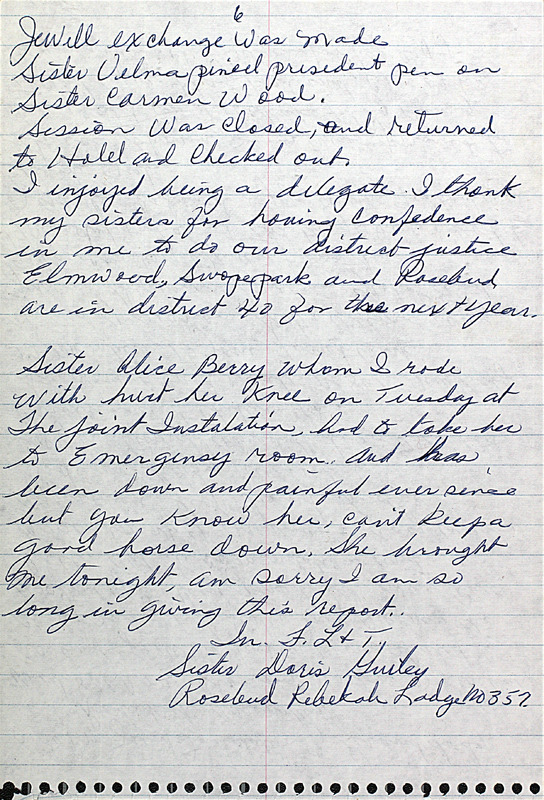 6
Jewell exchange Was Made
Sister Velma pined president pen on
Sister Carmen Wood.
Session Was Closed, and returned
to Hotel and Checked out.
I injoyed being a delegate. I thank
my sisters for having Confedence
in me to do our district justice
Elmwood, Swopepark and Rosebud
are in district 40 for the next year.
Sister Alice Berry whom I rode
With hurt her Knee on Tuesday at
The joint Instalation, had to take her
to Emergensy room. And has
been down and painful ever sence
but you Know her, can't keep a
good horse down. She brought
me tonight, am sorry I am so
long in giving this report..
In. F. L & T.
Sister Doris Gurley
Rosebud Rebekah Lodge No 357